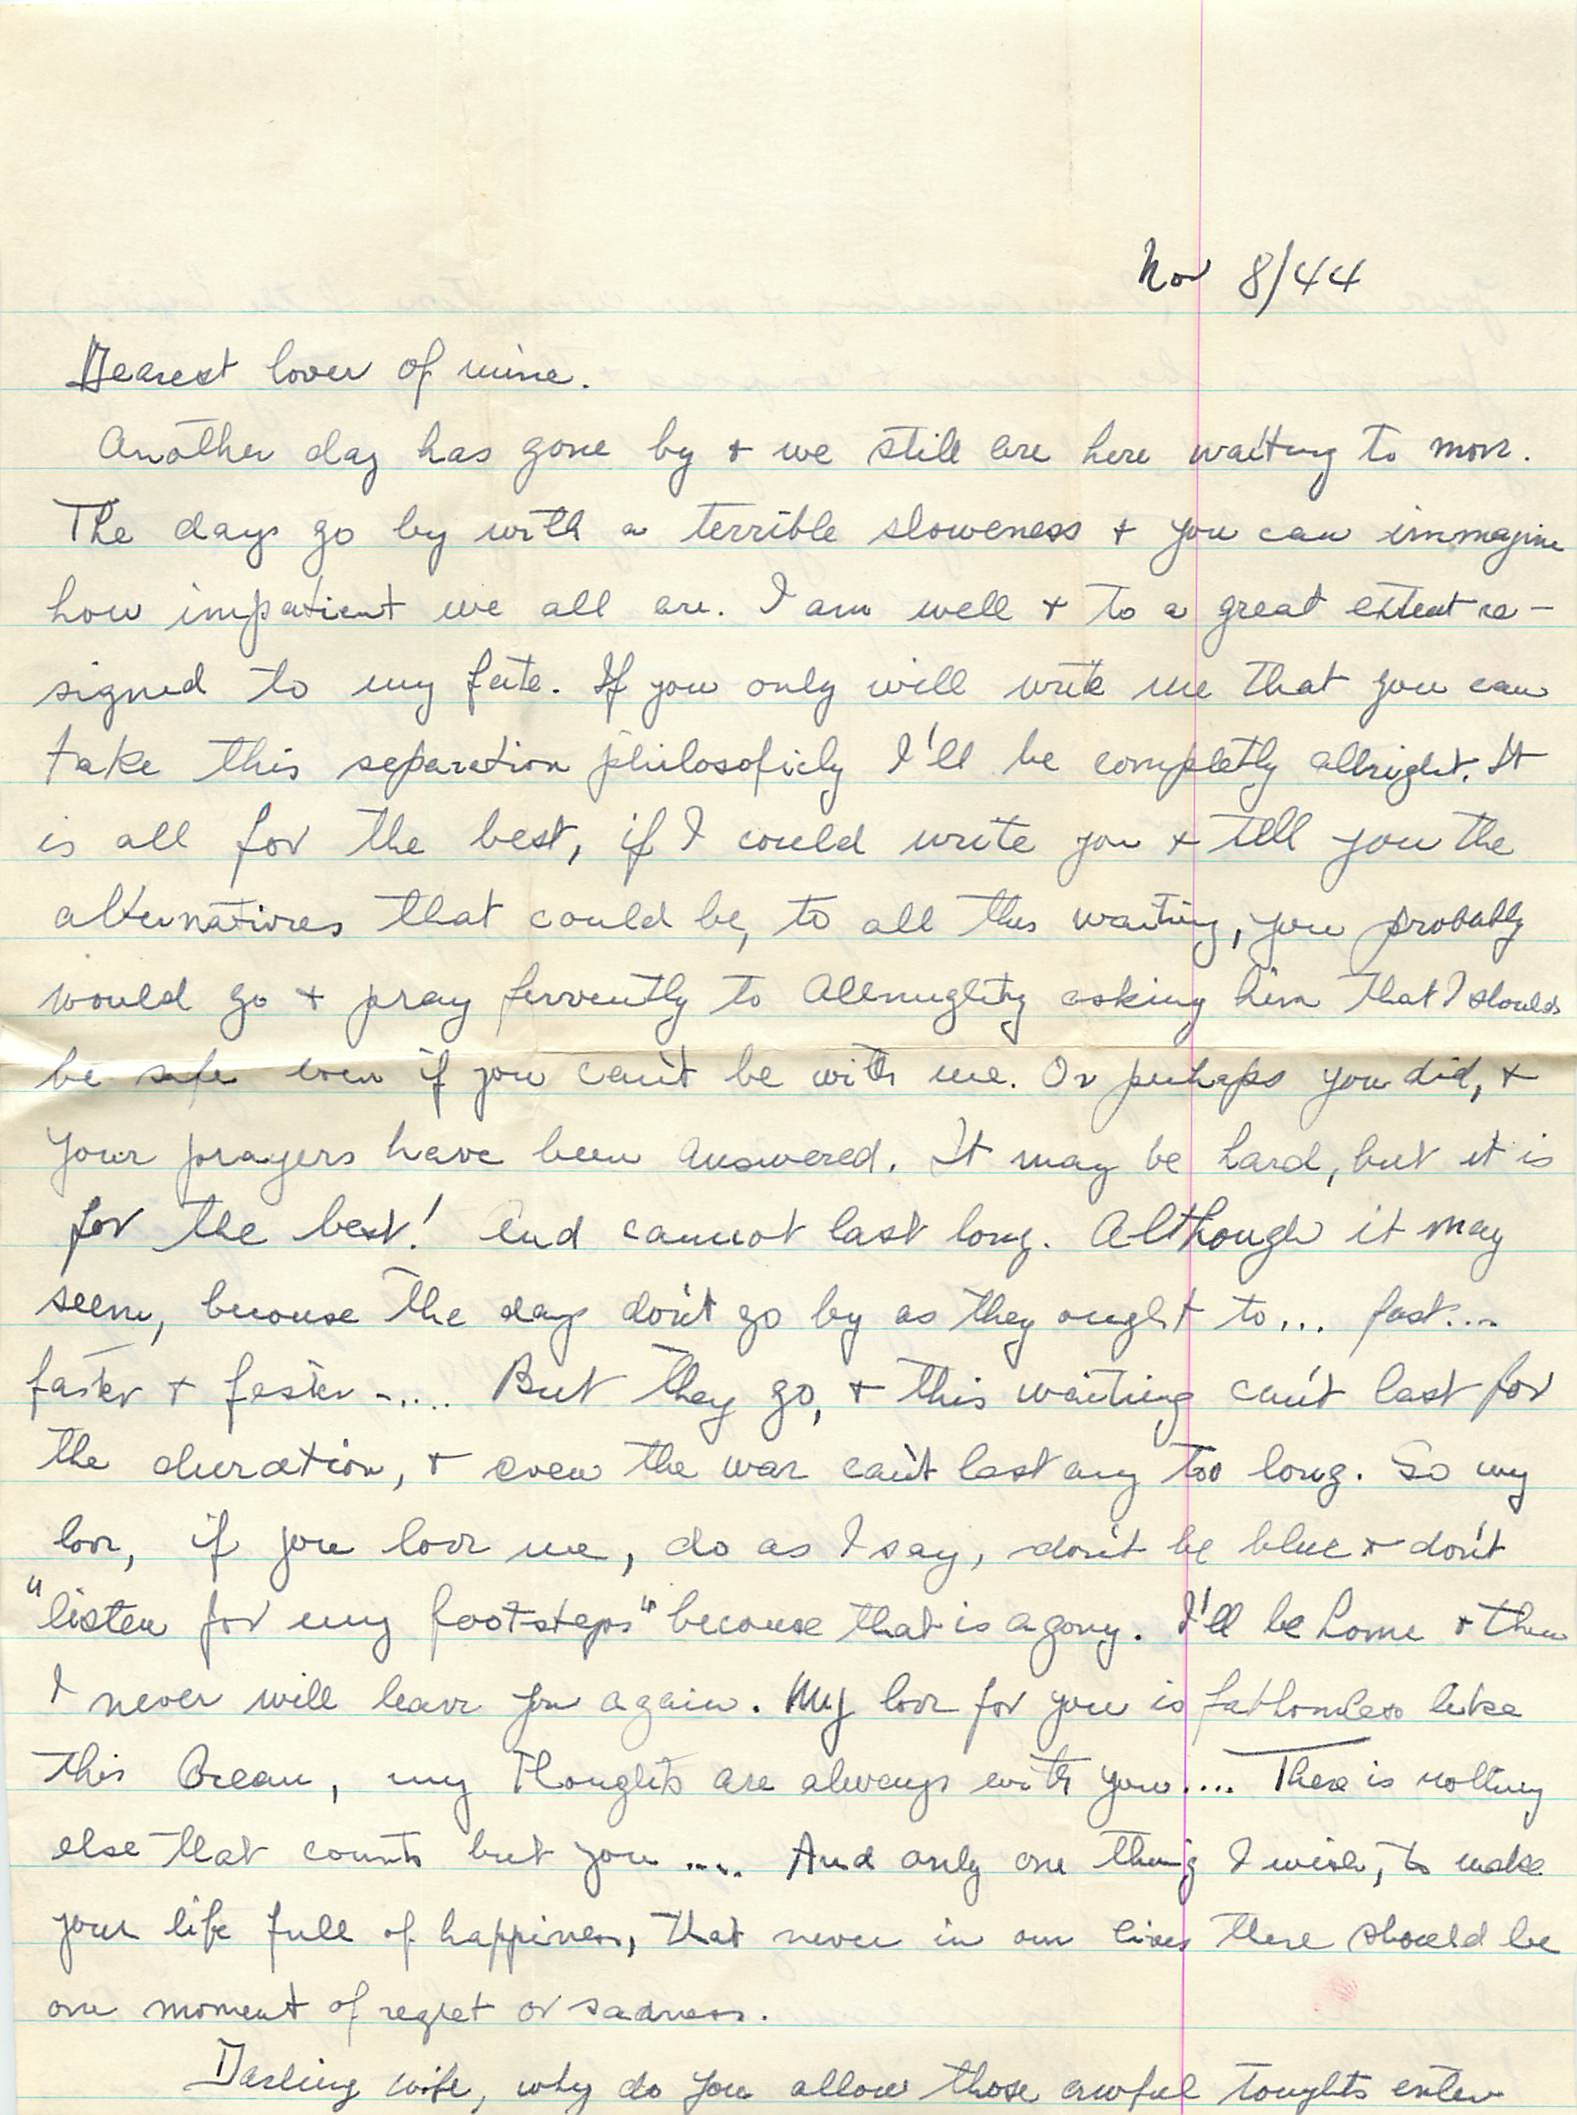 Nov 8/44
Dearest lover of mine.
Another day has gone by + we still are here waiting to move.
The days go by with a terrible sloweness + you can immagine
how impatient we all are. I am well + to a great extent re-
signed to my fate. If you only will write me that you can
take this separation philosoficly I'll be completly allright. It
is all for the best, if I could write you + tell you the
alternatives that could be, to all this waiting, you probably
would go + pray fervently to Allmughty asking him that I should
be safe even if you can't be with me. Or perhaps you did, +
your prayers have been answered. It may be hard, but it is
for the best! And cannot last long. Although it may
seem, becouse the days don't go by as they ought to... fast....
faster + faster ..... But they go, + this waiting can't last for
the duration, + even the war can't last any too long. So my
love, if you love me, do as I say, don't be blue + don't
"listen for my footsteps" becouse that is agony. I'll be home + then
I never will leave you again. My love for you is fathomless like
this Ocean, my thoughts are always with you.... There is nothing
else that counts but you .... And only one thing I wish, to make
your life full of happiness, that never in our lives there should be
one moment of regret or sadness.
Darling wife, why do you allow those awful toughts enter